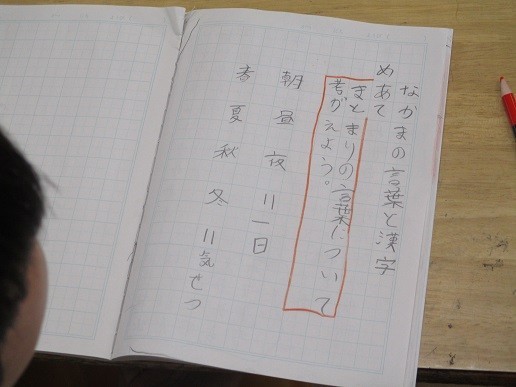 なかまの言葉と漢字
めあて
まとまりの言葉について
考がえよう。
朝 昼 夜 = 一日
春 夏 秋 冬 = 気せつ